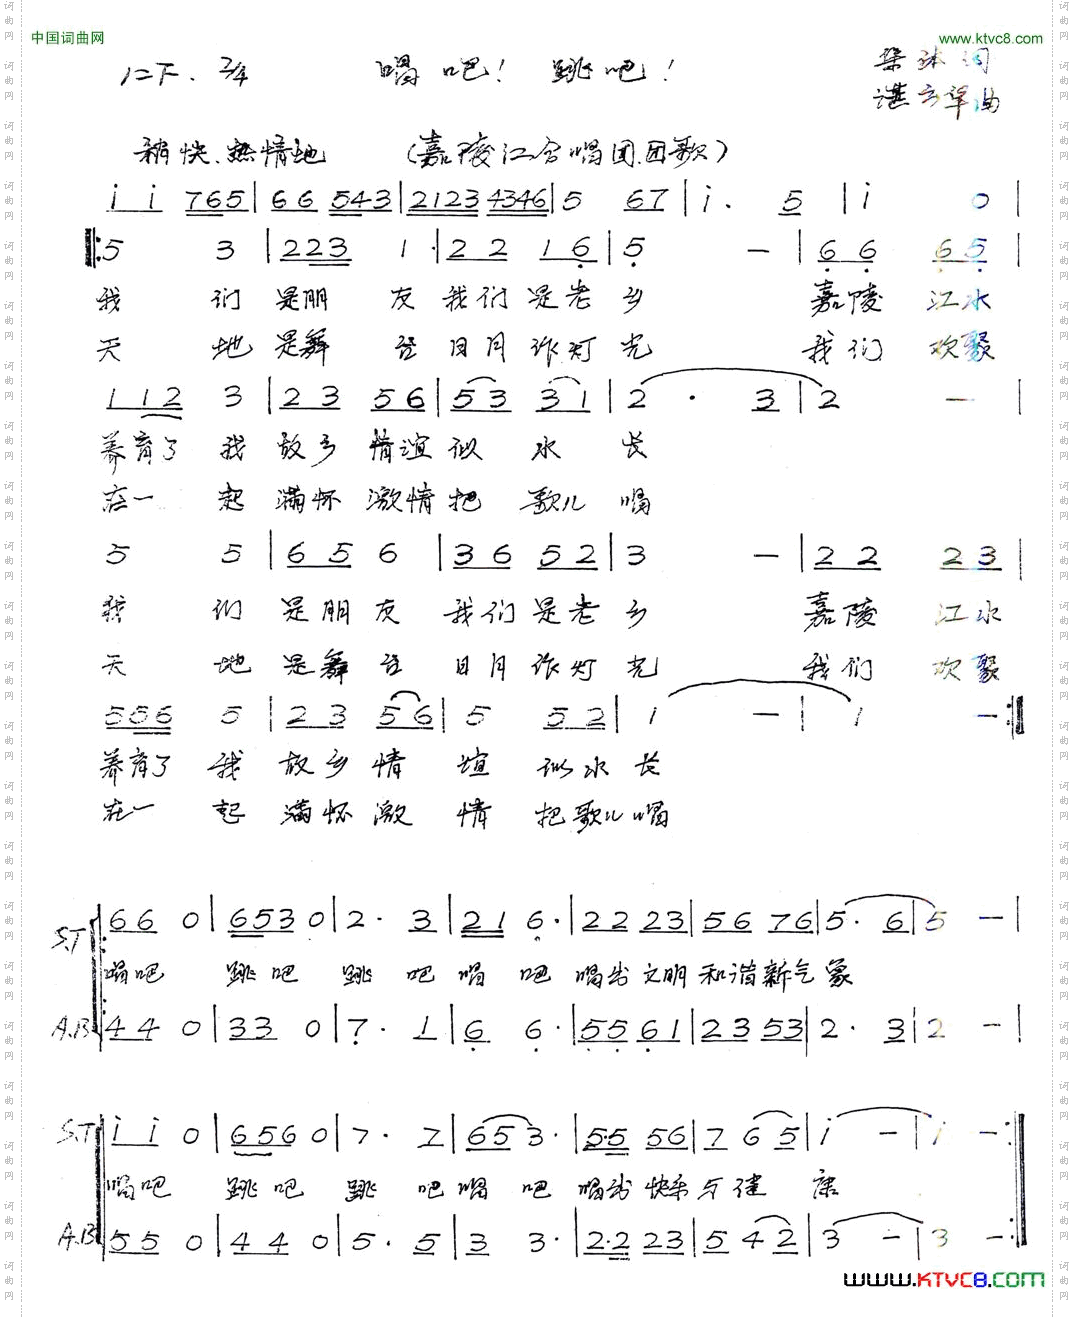 中国词曲网 www.ktvc8.com
唱吧！跳吧！
2/4
词
谌 曲
稍快、热情地 （嘉陵江合唱团团歌）
i i 7 6 5 | 6 6 5 4 3 | 2 1 2 3 4 3 4 6 | 5 6 7 | i · 5 | i 0 |
5 3 | 2 2 3 1 · | 2 2 1 6 | 5 — | 6 6 6 5 |
我们是朋友我们是老乡 嘉陵江水
天地是舞台日月作灯光 我们欢聚
1 1 2 3 | 2 3 5 6 | 5 3 3 1 | 2 · 3 | 2 — |
养育了我故乡情谊似水长
在一起满怀激情把歌儿唱
5 5 | 6 5 6 | 3 6 5 2 | 3 — | 2 2 2 3 |
我们是朋友我们是老乡 嘉陵江水
天地是舞台日月作灯光 我们欢聚
5 5 6 5 | 2 3 5 6 | 5 5 2 | 1 — | 1 — :|
养育了我故乡情谊似水长
在一起满怀激情把歌儿唱
S.T 6 6 0 | 6 5 3 0 | 2 · 3 | 2 1 6 · | 2 2 2 3 | 5 6 7 6 | 5 · 6 | 5 — |
唱吧 跳吧 跳吧唱吧 唱出文明和谐新气象
A.B 4 4 0 | 3 3 0 | 7 · 1 | 6 6 · | 5 5 6 1 | 2 3 5 3 | 2 · 3 | 2 — |
S.T i i 0 | 6 5 6 0 | 7 · 7 | 6 5 3 · | 5 · 5 5 6 | 7 6 5 | i — | i — :|
唱吧 跳吧 跳吧唱吧 唱出快乐与健康
A.B 5 5 0 | 4 4 0 | 5 · 5 | 3 3 · | 2 · 2 2 3 | 5 4 2 | 3 — | 3 — :|
www.KTVC8.com